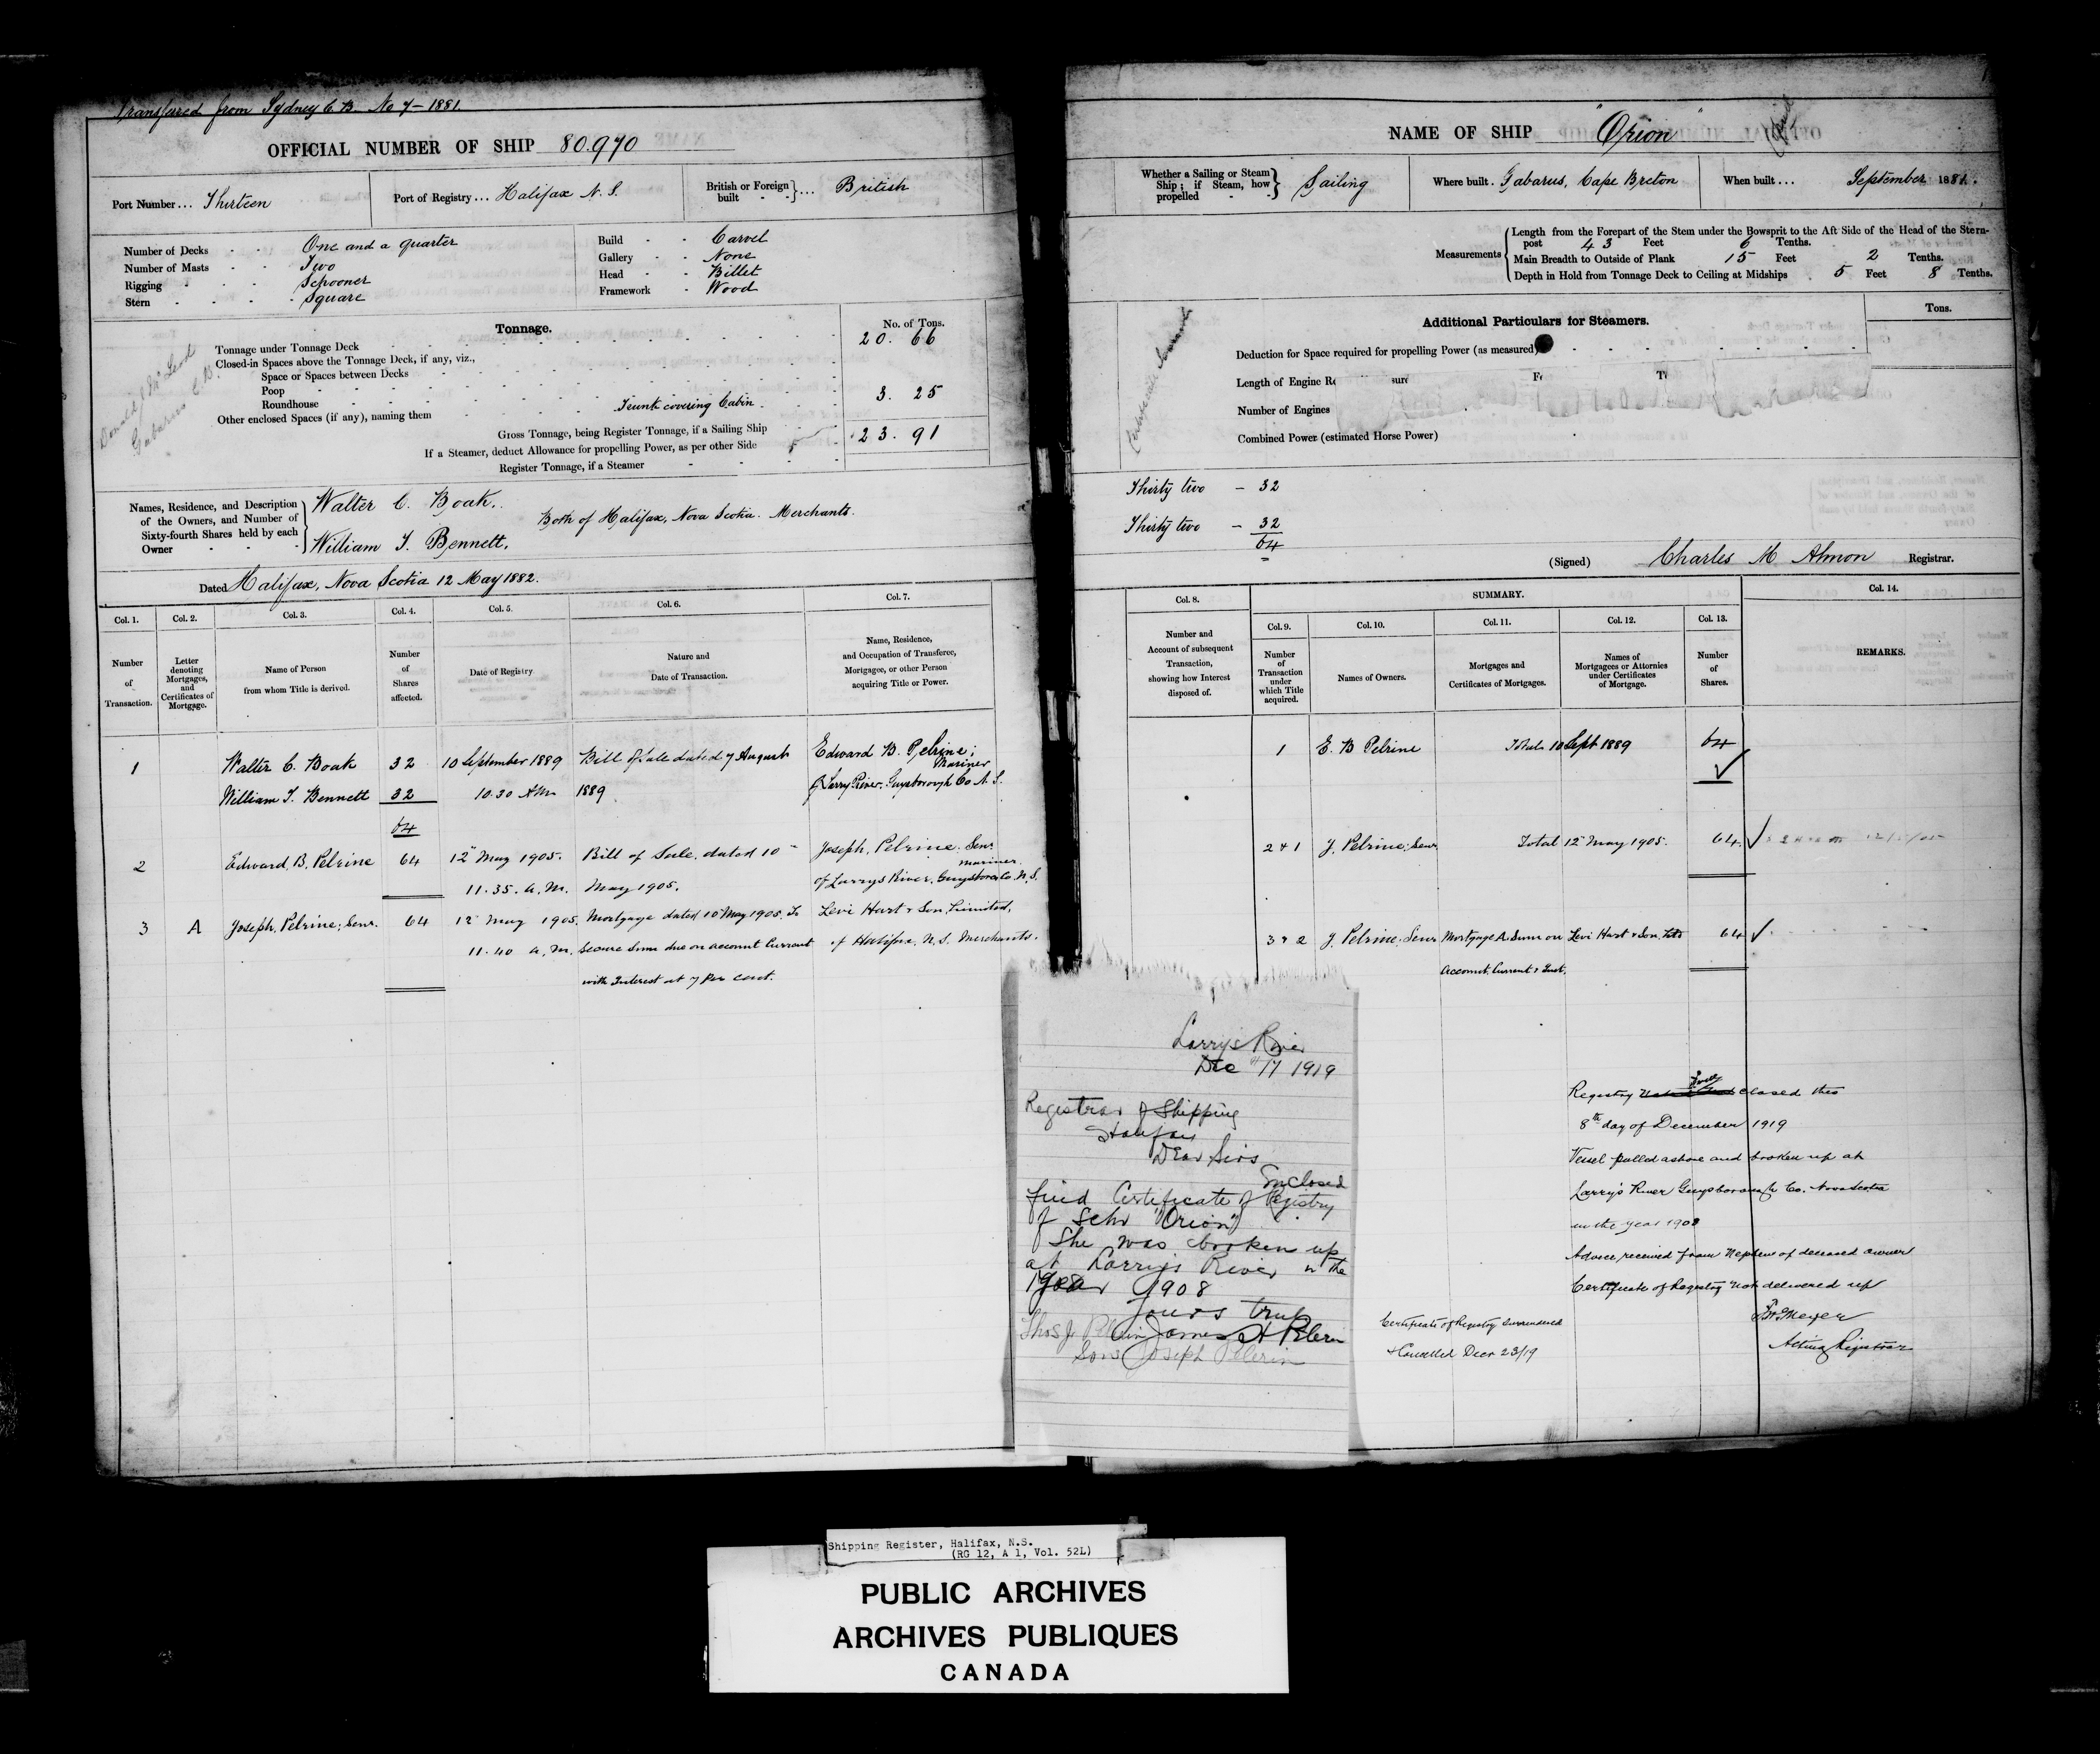 Transfured from Sydney C B No 7 - 1881.
OFFICIAL NUMBER OF SHIP 80.970
Port Number... Thirteen
Port of Registry... Halifax N. S.
British or Foreign built } ... British
Number of Decks One and a quarter
Number of Masts Two
Rigging Schooner
Stern Square
Build Carvel
Gallery None
Head Billet
Framework Wood
Tonnage.
No. of Tons.
Tonnage under Tonnage Deck 20. 66
Closed-in Spaces above the Tonnage Deck, if any, viz.,
Space or Spaces between Decks
Poop
Roundhouse
Other enclosed Spaces (if any), naming them Trunk covering Cabin 3. 25
Gross Tonnage, being Register Tonnage, if a Sailing Ship 23. 91
If a Steamer, deduct Allowance for propelling Power, as per other Side
Register Tonnage, if a Steamer
Donald McLeod
Gabarus C.B.
Names, Residence, and Description of the Owners, and Number of Sixty-fourth Shares held by each Owner
Walter C. Boak.
Both of Halifax, Nova Scotia. Merchants.
William T. Bennett.
Dated Halifax, Nova Scotia 12 May 1882.
Col. 1. Col. 2. Col. 3. Col. 4. Col. 5. Col. 6. Col. 7.
Number of Transaction.
Letter denoting Mortgages, and Certificates of Mortgage.
Name of Person from whom Title is derived.
Number of Shares affected.
Date of Registry.
Nature and Date of Transaction.
Name, Residence, and Occupation of Transferee, Mortgagee, or other Person acquiring Title or Power.
1 Walter C. Boak 32 10 September 1889 Bill of Sale dated 7 August Edward B. Pelrine; Mariner
William T. Bennett 32 10.30 AM 1889 of Larry River, Guysborough Co N. S.
64
2 Edward B. Pelrine 64 12" May 1905. Bill of Sale, dated 10" Joseph, Pelrine, Senr. Mariner
11.35. a.m. May 1905. of Larrys River, Guysboro Co. N.S.
3 A Joseph, Pelrine, Senr. 64 12" May 1905. Mortgage dated 10 May 1905. To Levi Hart & Son, Limited,
11.40 a.m. Secure Sum due on account Current of Halifax, N.S. Merchants.
with Interest at 7 Per cent.
NAME OF SHIP "Orion"
Whether a Sailing or Steam Ship; if Steam, how propelled } Sailing
Where built. Gabarus, Cape Breton
When built... September 1881.
Measurements
Length from the Forepart of the Stem under the Bowsprit to the Aft Side of the Head of the Stern-
post 43 Feet 6 Tenths.
Main Breadth to Outside of Plank 15 Feet 2 Tenths.
Depth in Hold from Tonnage Deck to Ceiling at Midships 5 Feet 8 Tenths.
Additional Particulars for Steamers.
Tons.
Deduction for Space required for propelling Power (as measured)
Length of Engine
Number of Engines
Combined Power (estimated Horse Power)
Thirty two - 32
Thirty two - 32
64
(Signed) Charles M Almon Registrar.
Col. 8. SUMMARY. Col. 14.
Col. 9. Col. 10. Col. 11. Col. 12. Col. 13.
Number and Account of subsequent Transaction, showing how Interest disposed of.
Number of Transaction under which Title acquired.
Names of Owners.
Mortgages and Certificates of Mortgages.
Names of Mortgagees or Attornies under Certificates of Mortgage.
Number of Shares.
REMARKS.
1 E. B Pelrine Total 10 Sept 1889 64
2 & 1 J. Pelrine, Senr Total 12" May 1905. 64
3 & 2 J. Pelrine, Senr Mortgage A. Sum on Levi Hart & Son, Ltd 64
Account, Current & Inst.
Larrys River
Dec 17 1919
Registrar of Shipping
Halifax
Dear Sirs
Enclosed
find Certificate of Registry
of Schr "Orion"
She was broken up
at Larrys River in the
year 1908
yours truly
James H Pelerin
Sons Joseph Pelerin
Registry closed this
8th day of December 1919
Vessel pulled ashore and broken up at
Larry's River Guysborough Co. Nova Scotia
in the year 1908
Advice received from Nephew of deceased owner
Certificate of Registry not delivered up
Meyer
Acting Registrar
Certificate of Registry surrendered
& Cancelled Decr 23/19
Shipping Register, Halifax, N.S.
(RG 12, A 1, Vol. 52L)
PUBLIC ARCHIVES
ARCHIVES PUBLIQUES
CANADA